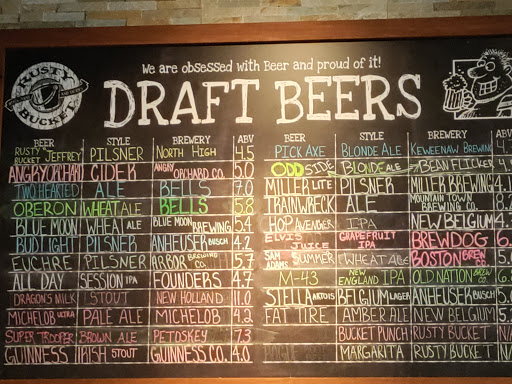 RUSTY BUCKET
We are obsessed with Beer and proud of it!
DRAFT BEERS
BEER STYLE BREWERY ABV
RUSTY BUCKET JEFFREY PILSNER NORTH HIGH 4.5
ANGRY ORCHARD CIDER ANGRY ORCHARD CO. 5.0
TWO HEARTED ALE BELLS 7.0
OBERON WHEAT ALE BELLS 5.8
BLUE MOON WHEAT ALE BLUE MOON BREWING 5.4
BUD LIGHT PILSNER ANHEUSER BUSCH 4.2
EUCHRE PILSNER ARBOR BREWING CO. 5.7
ALL DAY SESSION IPA FOUNDERS 4.7
DRAGON'S MILK STOUT NEW HOLLAND 11.0
MICHELOB ULTRA PALE ALE MICHELOB 4.2
SUPER TROOPER BROWN ALE PETOSKEY 7.3
GUINNESS IRISH STOUT GUINNESS CO. 4.0
BEER STYLE BREWERY ABV
PICK AXE BLONDE ALE KEWEENAW BREWING 4.
ODD SIDE BLONDE ALE BEAN FLICKER 4.
MILLER LITE PILSNER MILLER BREWING 4.
TRAINWRECK ALE MOUNTAIN TOWN BREWING CO. 8.
HOP AVENGER IPA NEW BELGIUM 4.
ELVIS JUICE GRAPEFRUIT IPA BREWDOG 6.
SAM ADAMS SUMMER WHEAT ALE BOSTON BREW CO. 5.
M-43 NEW ENGLAND IPA OLD NATION BREW CO. 6.
STELLA ARTOIS BELGIUM LAGER ANHEUSER BUSCH 5.
FAT TIRE AMBER ALE NEW BELGIUM 5.
BUCKET PUNCH RUSTY BUCKET N/
MARGARITA RUSTY BUCKET N/